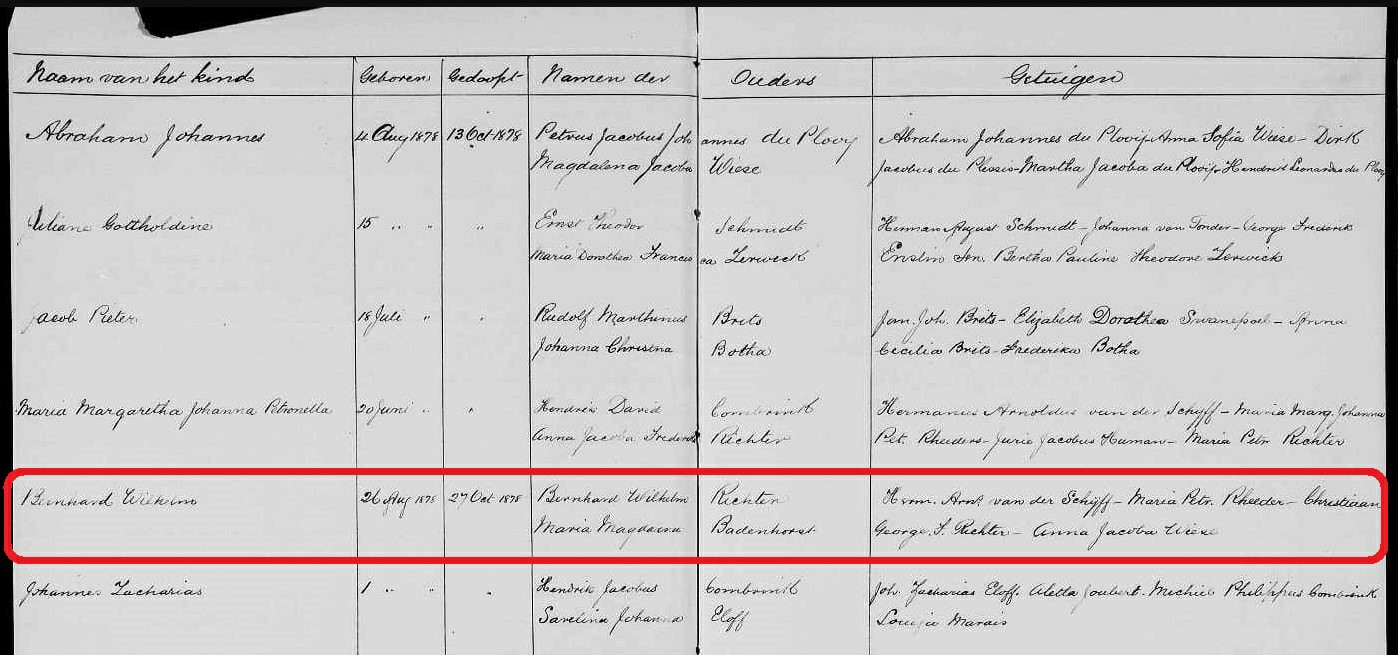 Naam van het kind Geboren Gedoopt Namen der Ouders Getuigen
Abraham Johannes 4 Aug 1878 13 Oct 1878 Petrus Jacobus Johannes du Plooy Abraham Johannes du Plooij Anna Sofia Wiese - Dirk
Magdalena Jacoba Wiese Jacobus du Plessis - Martha Jacoba du Plooij - Hendrik Leonardus du Plooy
Juliane Gottholdine 15 " " " Ernst Theodor Schmidt Herman August Schmidt - Johanna van Tonder - George Frederik
Maria Dorothea Francisca Zerwick Enslin Sen. Bertha Pauline Theodore Zerwick
Jacob Pieter 18 Juli " " Rudolf Marthinus Brits Jan. Joh. Brits - Elizabeth Dorathea Swanepoel - Anna
Johanna Chrisina Botha Cecilia Brits - Frederika Botha
Maria Margaretha Johanna Petronella 20 Juni " " Hendrik David Combrink Hermanus Arnoldus van der Schyff - Maria Marg. Johanna
Anna Jacoba Frederik Richter Pet. Rheeders - Jurie Jacobus Human - Maria Petr. Richter
Bernhard Wilhelm 26 Aug 1878 27 Oct 1878 Bernhard Wilhelm Richter Herm. Arn. van der Schijff - Maria Petr. Rheeder - Christiaan
Maria Magdalena Badenhorst George S. Richter - Anna Jacoba Wiese
Johannes Zacharias 1 " " " Hendrik Jacobus Combrink Joh. Zacharias Eloff. Aletta Joubert. Michiel Philippus Combrink
Sarelina Johanna Eloff Louiza Marais